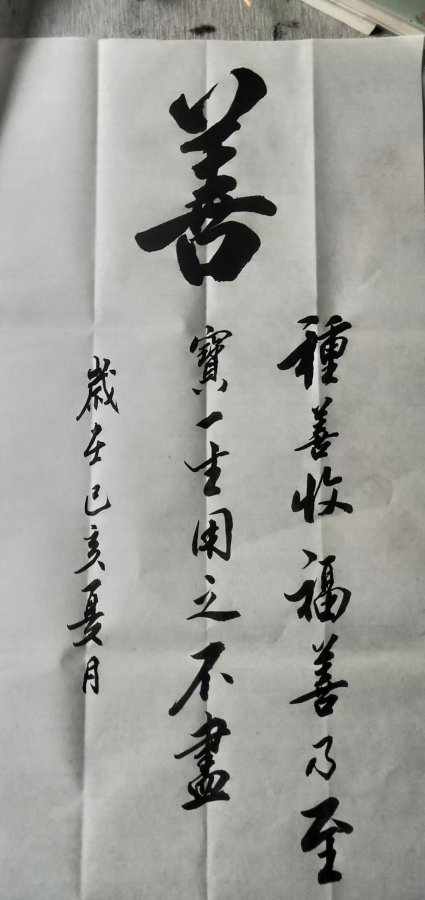 善
種善收福善乃至
寶一生用之不盡
歲在己亥夏月